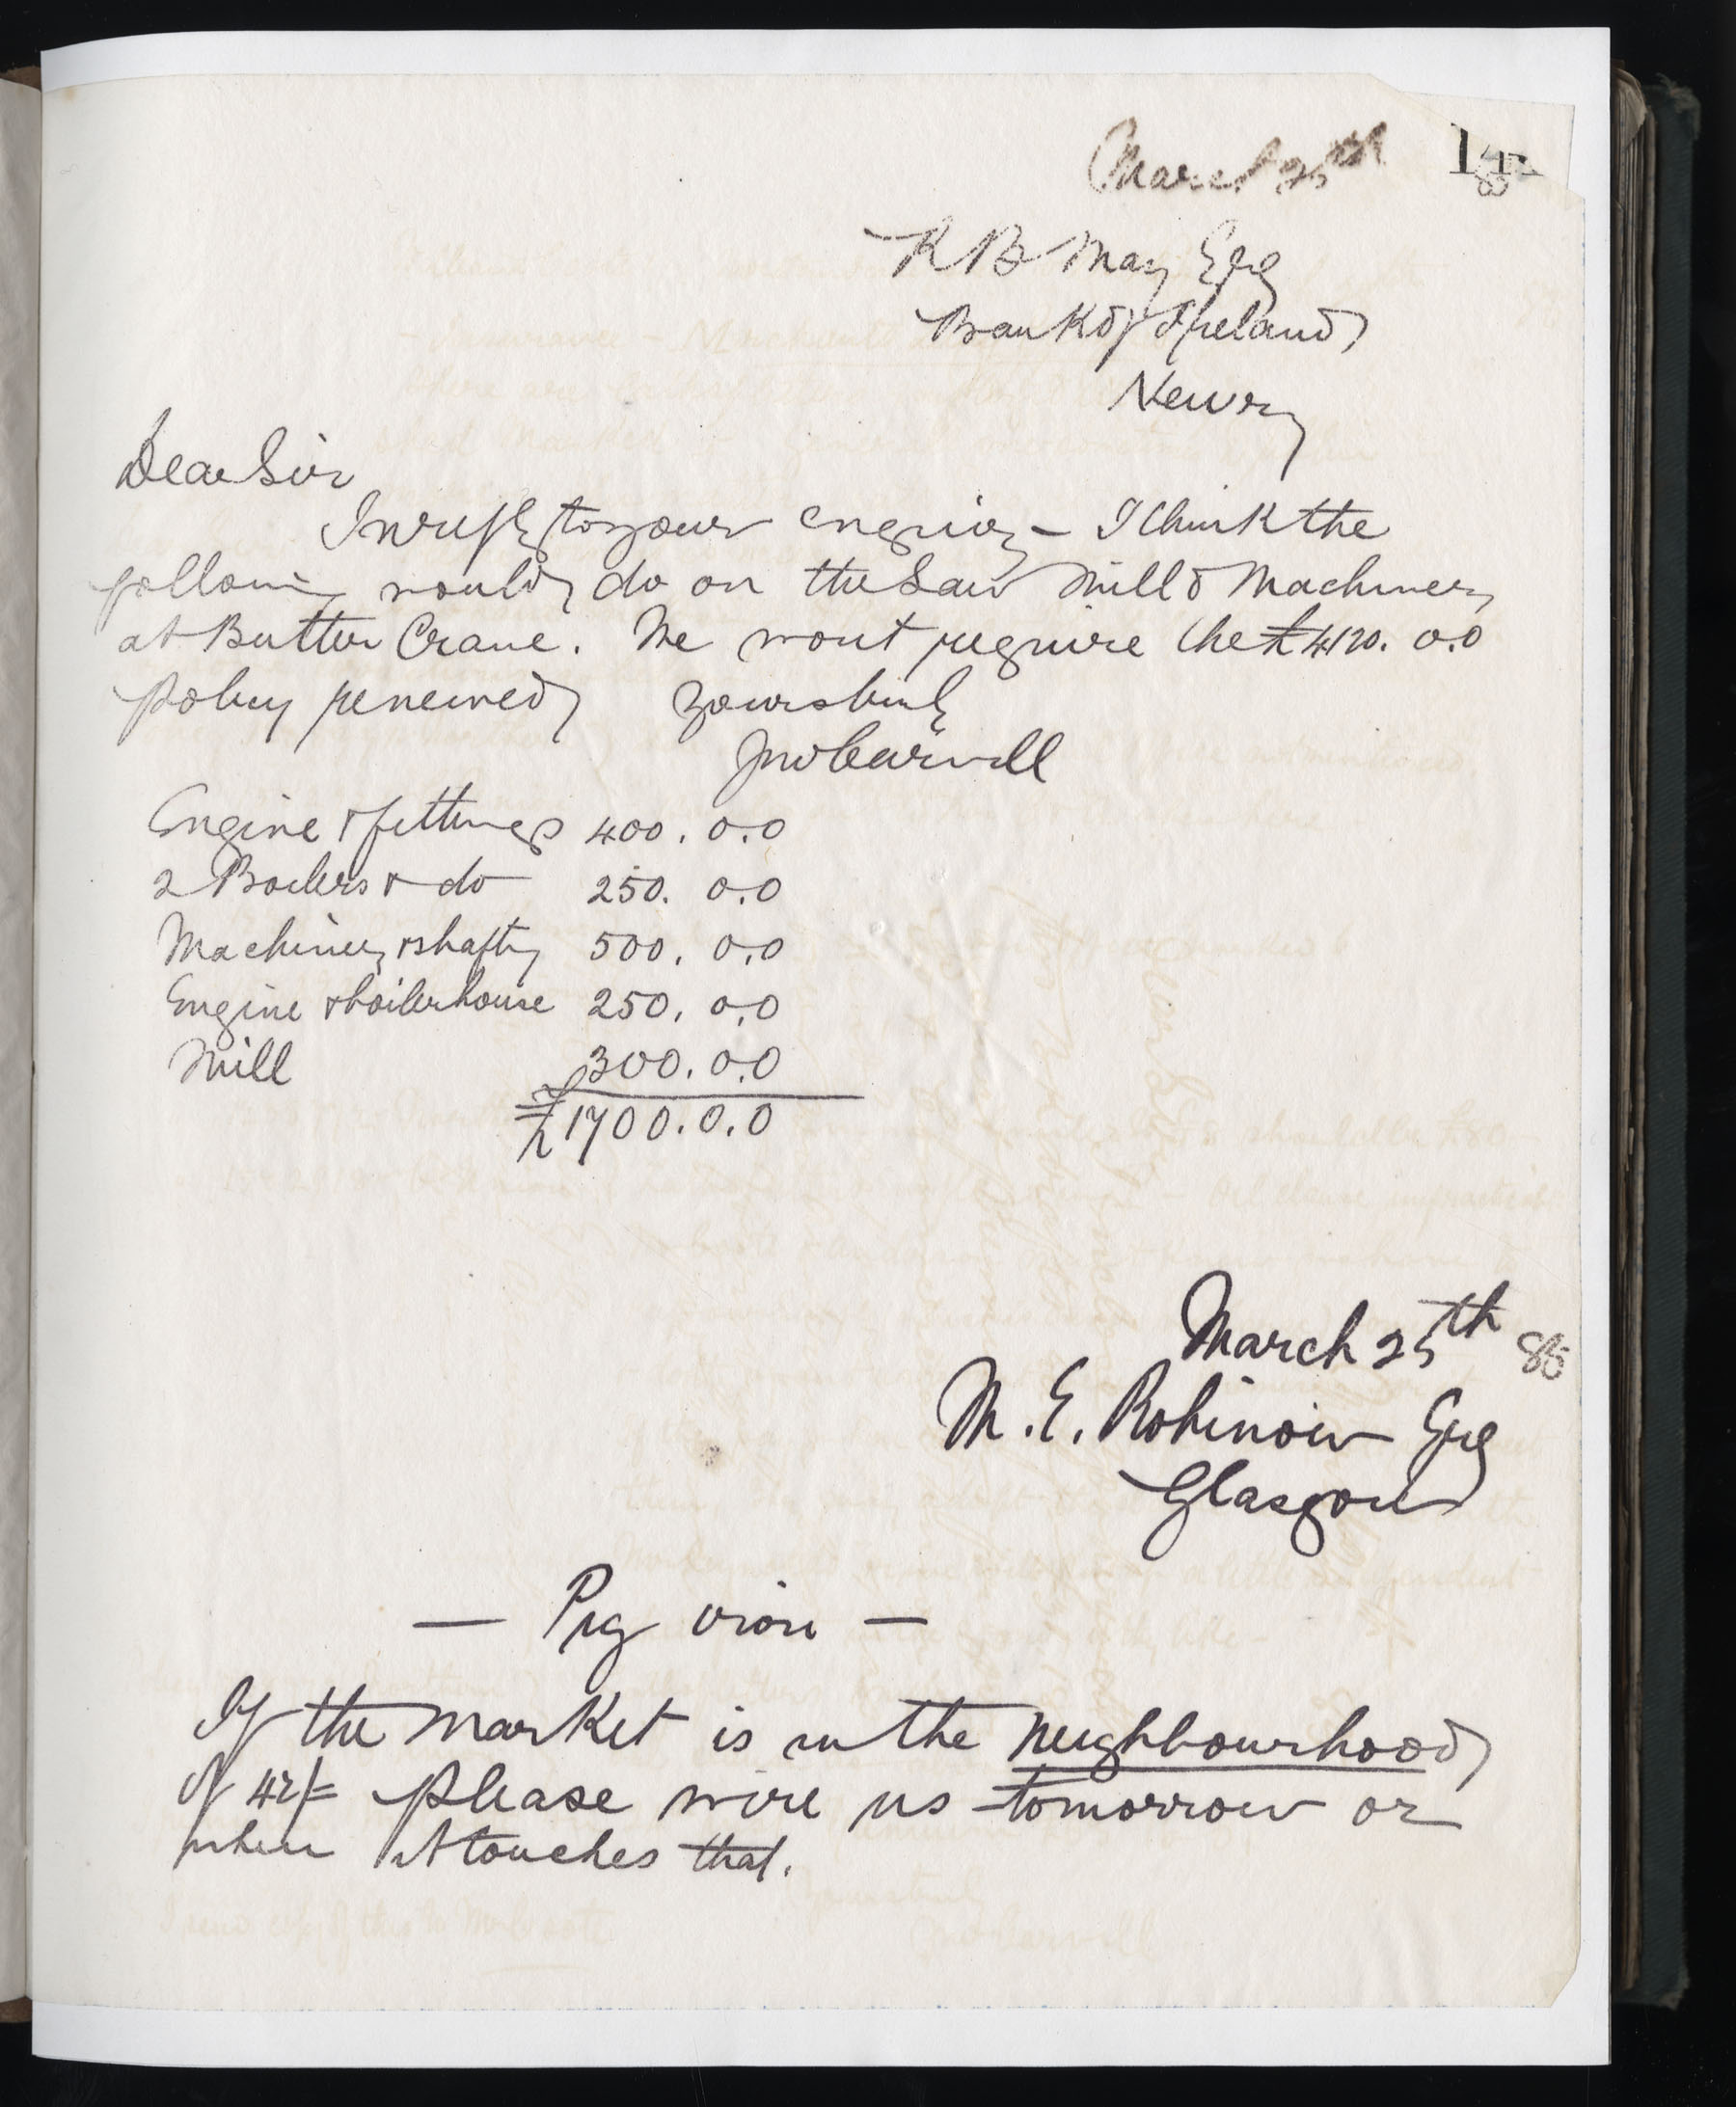 March 25th
R B May Esq
Bank of Ireland
Newry
Dear Sir
In reply to your enquiry - I think the
following would do on the Saw Mill & Machinery
at Butter Crane. We wont require the £420. 0.0
policy renewed yours truly
Jno Carvill
Engine & fittings 400. 0.0
2 Boilers & do 250. 0.0
Machinery & shafting 500. 0.0
Engine & boilerhouse 250. 0.0
Mill 300. 0.0
£1700. 0. 0
March 25th 85
M. E. Robinow Esq
Glasgow
- Pig iron -
If the market is in the neighbourhood
of 42/= please wire us tomorrow or
when it touches that.